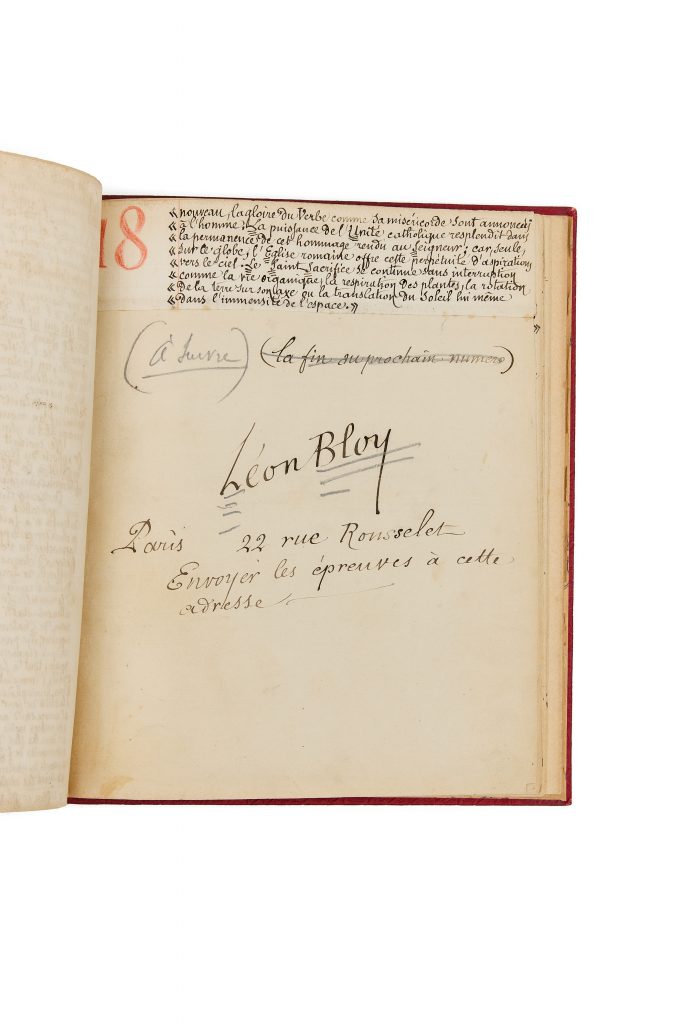 18
« nouveau, la gloire du Verbe comme sa miséricorde sont annoncés
« à l'homme. La puissance de l'Unité catholique resplendit dans
« la permanence de cet hommage rendu au Seigneur; car, seule,
« sur le globe, l'Eglise romaine offre cette perpétuité d'aspirations
« vers le ciel. Le Saint Sacrifice se continue sans interruption
« comme la vie organique, la respiration des plantes, la rotation
« de la terre sur son axe ou la translation du Soleil lui même
« dans l'immensité de l'espace. »
»
(à suivre) (la fin au prochain numero)
Léon Bloy
Paris 22 rue Rousselet
Envoyer les épreuves à cette
adresse